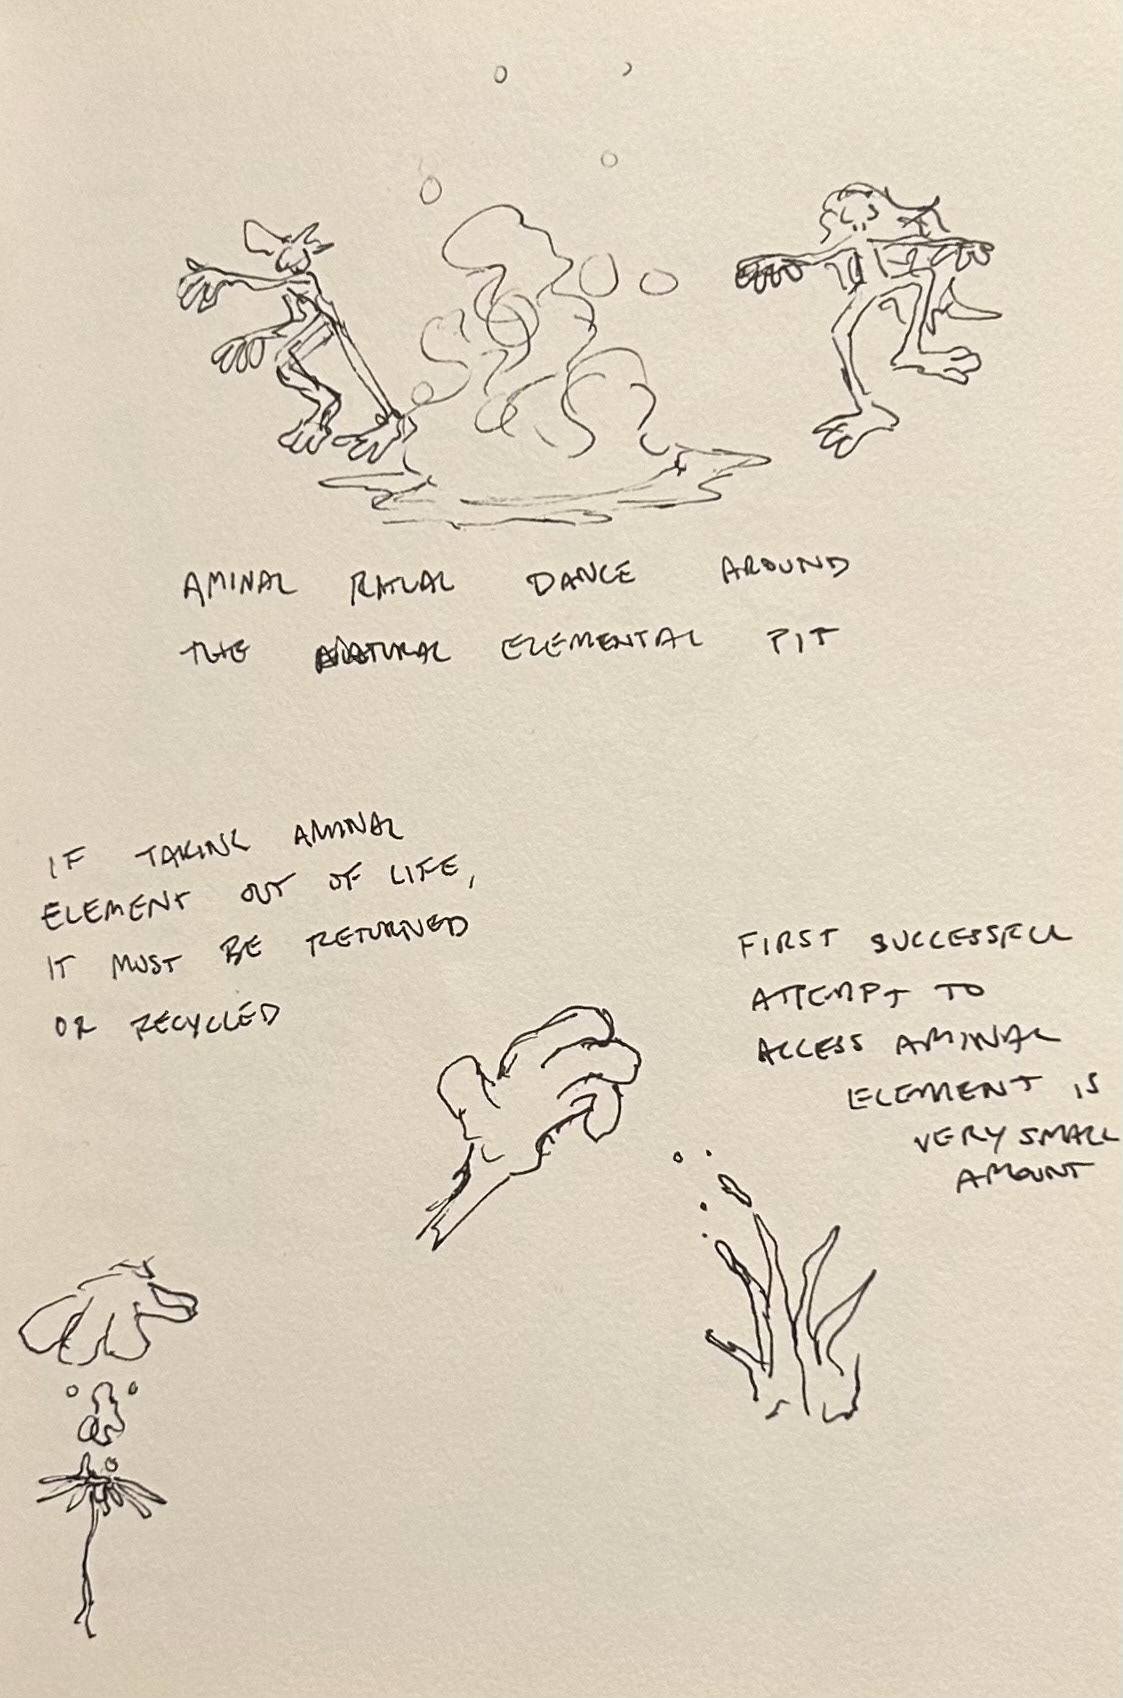 AMINAL RITUAL DANCE AROUND
THE NATURAL ELEMENTAL PIT
IF TAKING AMINAL
ELEMENT OUT OF LIFE,
IT MUST BE RETURNED
OR RECYCLED
FIRST SUCCESSFUL
ATTEMPT TO
ACCESS AMINAL
ELEMENT IS
VERY SMALL
AMOUNT